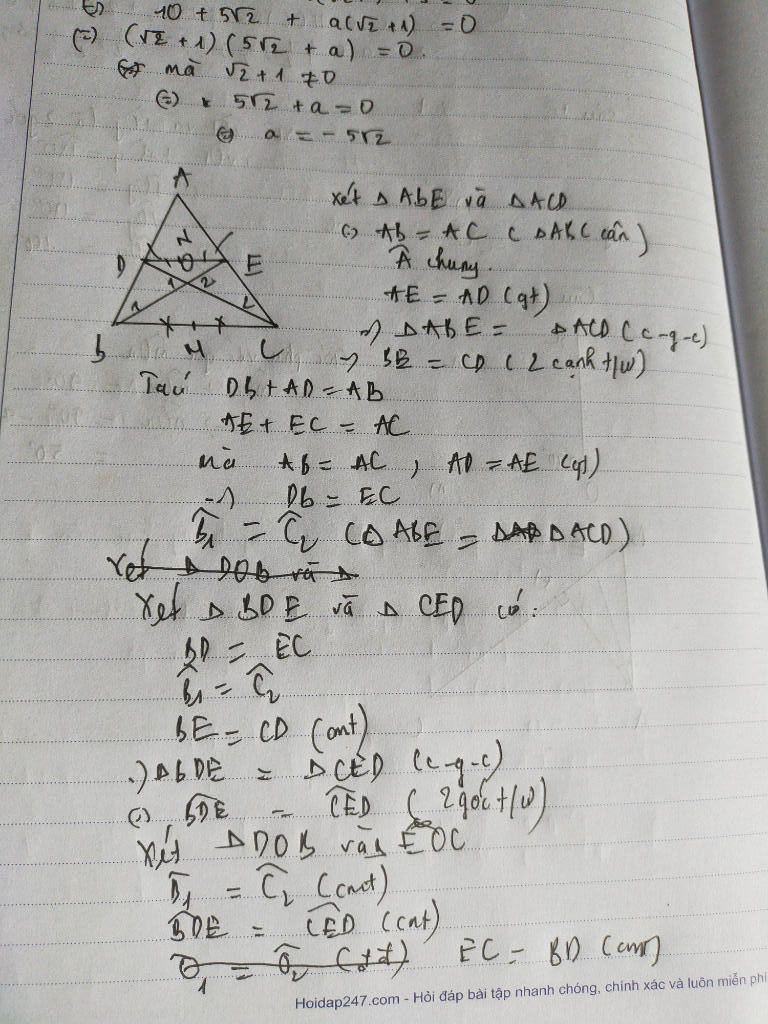 ⇔ 10 + 5√2 + a(√2 + 1) = 0
⇔ (√2 + 1) (5√2 + a) = 0.
mà √2 + 1 ≠ 0
⇔ 5√2 + a = 0
⇔ a = - 5√2
A
N
D 1 O 1 E
1 2
1 2
B M C
xét Δ AbE và Δ ACD
Ab = AC ( Δ ABC cân )
Â chung.
AE = AD (gt)
=) Δ ABE = ΔACD (c-g-c)
=) BE = CD ( 2 cạnh t/ư)
Ta có Db + AD = AB
AE + EC = AC
mà AB = AC , AD = AE (gt)
=) Db = EC
B̂1 = Ĉ2 (Δ AbE = ΔAD Δ ACD)
Xét Δ DOB và Δ
Xét Δ BDE và Δ CED có:
BD = EC
B̂1 = Ĉ2
BE = CD (cmt)
=) ΔbDE = ΔCED (c-g-c)
=) BDE = CED ( 2 góc t/ư)
Xét ΔDOB và EOC
B̂1 = Ĉ2 (cmt)
BDE = CED (cmt)
Ô1 = Ô2 (đđ) EC = BD (cmt)
Hoidap247.com - Hỏi đáp bài tập nhanh chóng, chính xác và luôn miễn phí